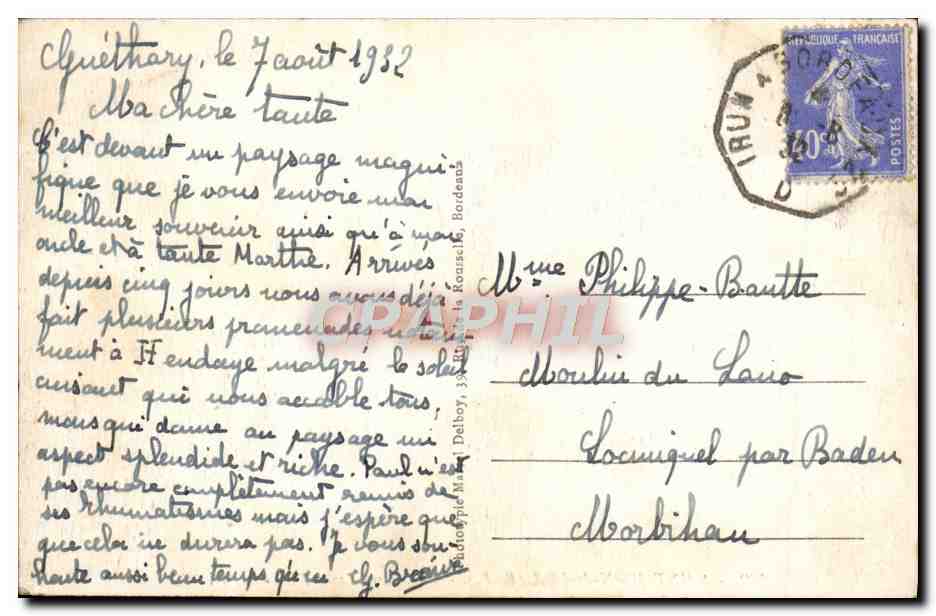 Guéthary, le 7 août 1932
Ma chère tante
C'est devant un paysage magni-
fique que je vous envoie mon
meilleur souvenir ainsi qu'à mon
oncle et à tante Marthe. Arrivés
depuis cinq jours nous avons déjà
fait plusieurs promenades notam
ment à Hendaye malgré le soleil
cuisant qui nous accable tous,
mais qui donne au paysage un
aspect splendide et riche. Paul n'est
pas encore complètement remis de
ses rhumatismes mais j'espère que
que cela ne durera pas. Je vous sou-
haite aussi beau temps qu'ici
Phototypie Marcel Delboy, 39, Rue de la Rousselle, Bordeaux
CPARPHIL
REPUBLIQUE FRANÇAISE
POSTES
IRUN A BORDEAUX
8
32
D
Mme Philippe-Bautte
Moulin du Lano
Locmiquel par Baden
Morbihan